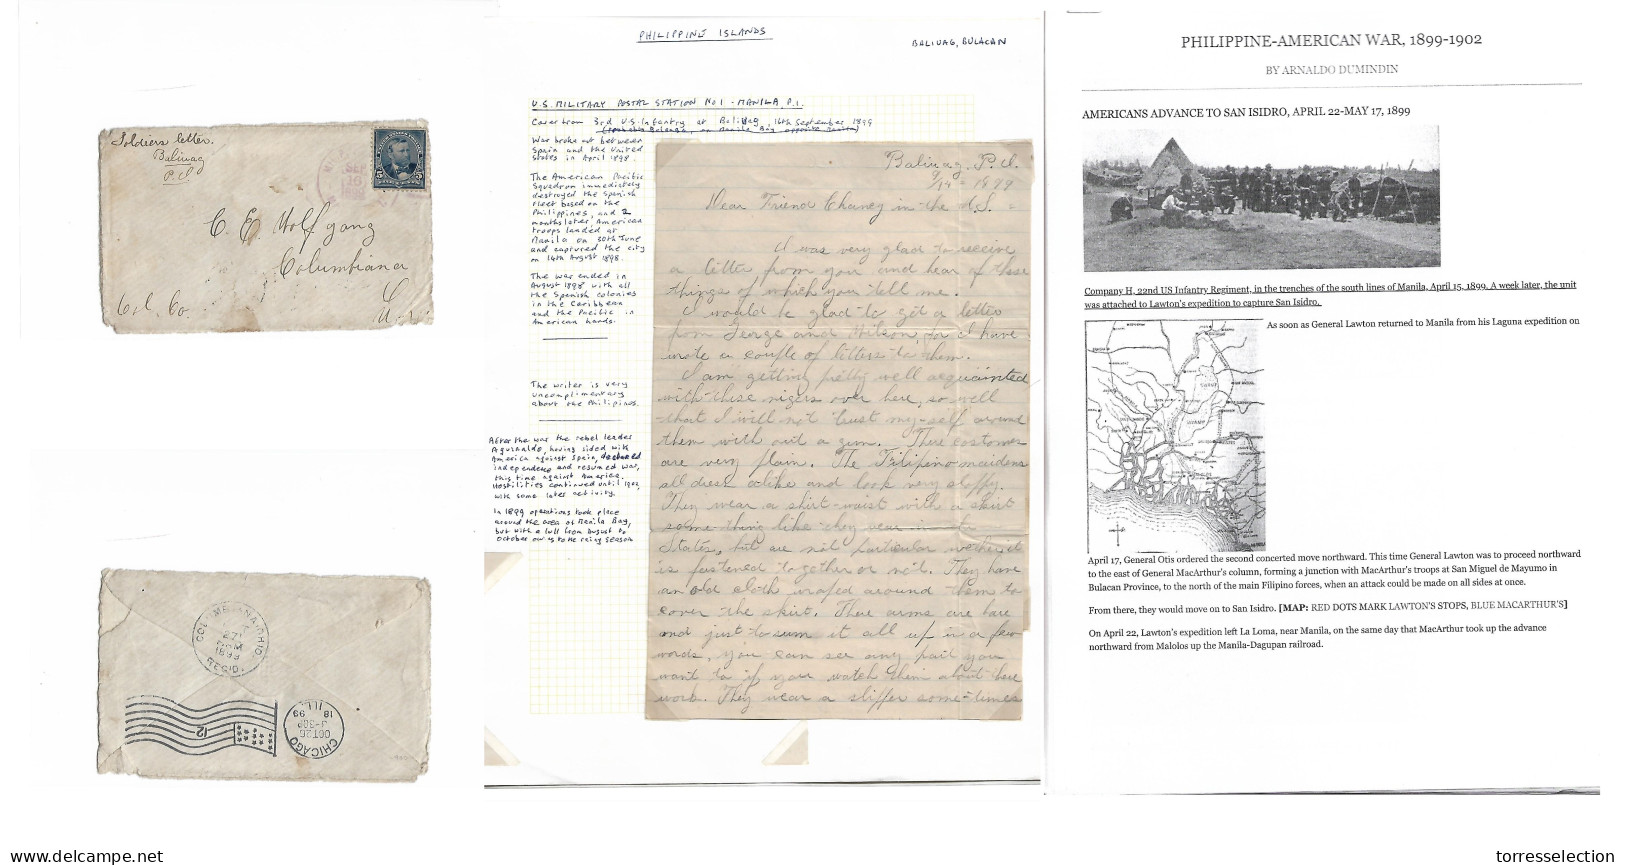 Soldiers letter.
Baliuag
P.I.
C. E. Wolfgang
Columbiana
Col. Co.
COLUMBIANA, OHIO
REC'D.
1899
CHICAGO
ILL.
OCT 26
99
18
12
PHILIPPINE ISLANDS
BALIUAG, BULACAN
U.S. MILITARY POSTAL STATION No 1 - MANILA, P.I.
Cover from 3rd U.S. Infantry at Baliuag, 16th September 1899
War broke out between
Spain and the United
States in April 1898.
The American Pacific
Squadron immediately
destroyed the Spanish
fleet based on the
Philippines, and 2
months later, American
troops landed at
Manila on 30th June
and captured the city
on 14th August 1898.
The war ended in
August 1898 with all
the Spanish colonies
in the Caribbean
and the Pacific in
American hands.
The writer is very
uncomplimentary
about the Philipinos.
After the war the rebel leader
Aguinaldo, having sided with
America against Spain, declared
independence and resumed war,
this time against America.
Hostilities continued until 1902,
with some later activity.
In 1899 operations took place
around the area of Manila Bay,
but with a lull from August to
October owing to the rainy season
Baliuag. P.I.
9/14 - 1899
Dear Friend Chaney in the U.S. =
I was very glad to receive
a letter from you and hear of those
things of which you tell me.
I would be glad to get a letter
from George and Wilson, for I have
wrote a couple of letters to them.
I am getting pretty well acquainted
with these nigers over here, so well
that I will not trust my-self around
them with out a gun. There costomes
are very plain. The Filipino maidens
all dress alike and look very sloppy.
They wear a shirt-waist with a skirt
some-thing like they wear in the
States, but are not particular wether it
is fastened to-gether or not. They have
an old cloth wraped around them to
cover the skirt. There arms are bare
and just to sum it all up in a few
words, you can see any part you
want to if you watch them about there
work. They wear a slipper some-times
PHILIPPINE-AMERICAN WAR, 1899-1902
BY ARNALDO DUMINDIN
AMERICANS ADVANCE TO SAN ISIDRO, APRIL 22-MAY 17, 1899
Company H, 22nd US Infantry Regiment, in the trenches of the south lines of Manila, April 15, 1899. A week later, the unit
was attached to Lawton's expedition to capture San Isidro.
As soon as General Lawton returned to Manila from his Laguna expedition on
April 17, General Otis ordered the second concerted move northward. This time General Lawton was to proceed northward
to the east of General MacArthur's column, forming a junction with MacArthur's troops at San Miguel de Mayumo in
Bulacan Province, to the north of the main Filipino forces, when an attack could be made on all sides at once.
From there, they would move on to San Isidro. [MAP: RED DOTS MARK LAWTON'S STOPS, BLUE MACARTHUR'S]
On April 22, Lawton's expedition left La Loma, near Manila, on the same day that MacArthur took up the advance
northward from Malolos up the Manila-Dagupan railroad.
www.delcampe.net
torresselection